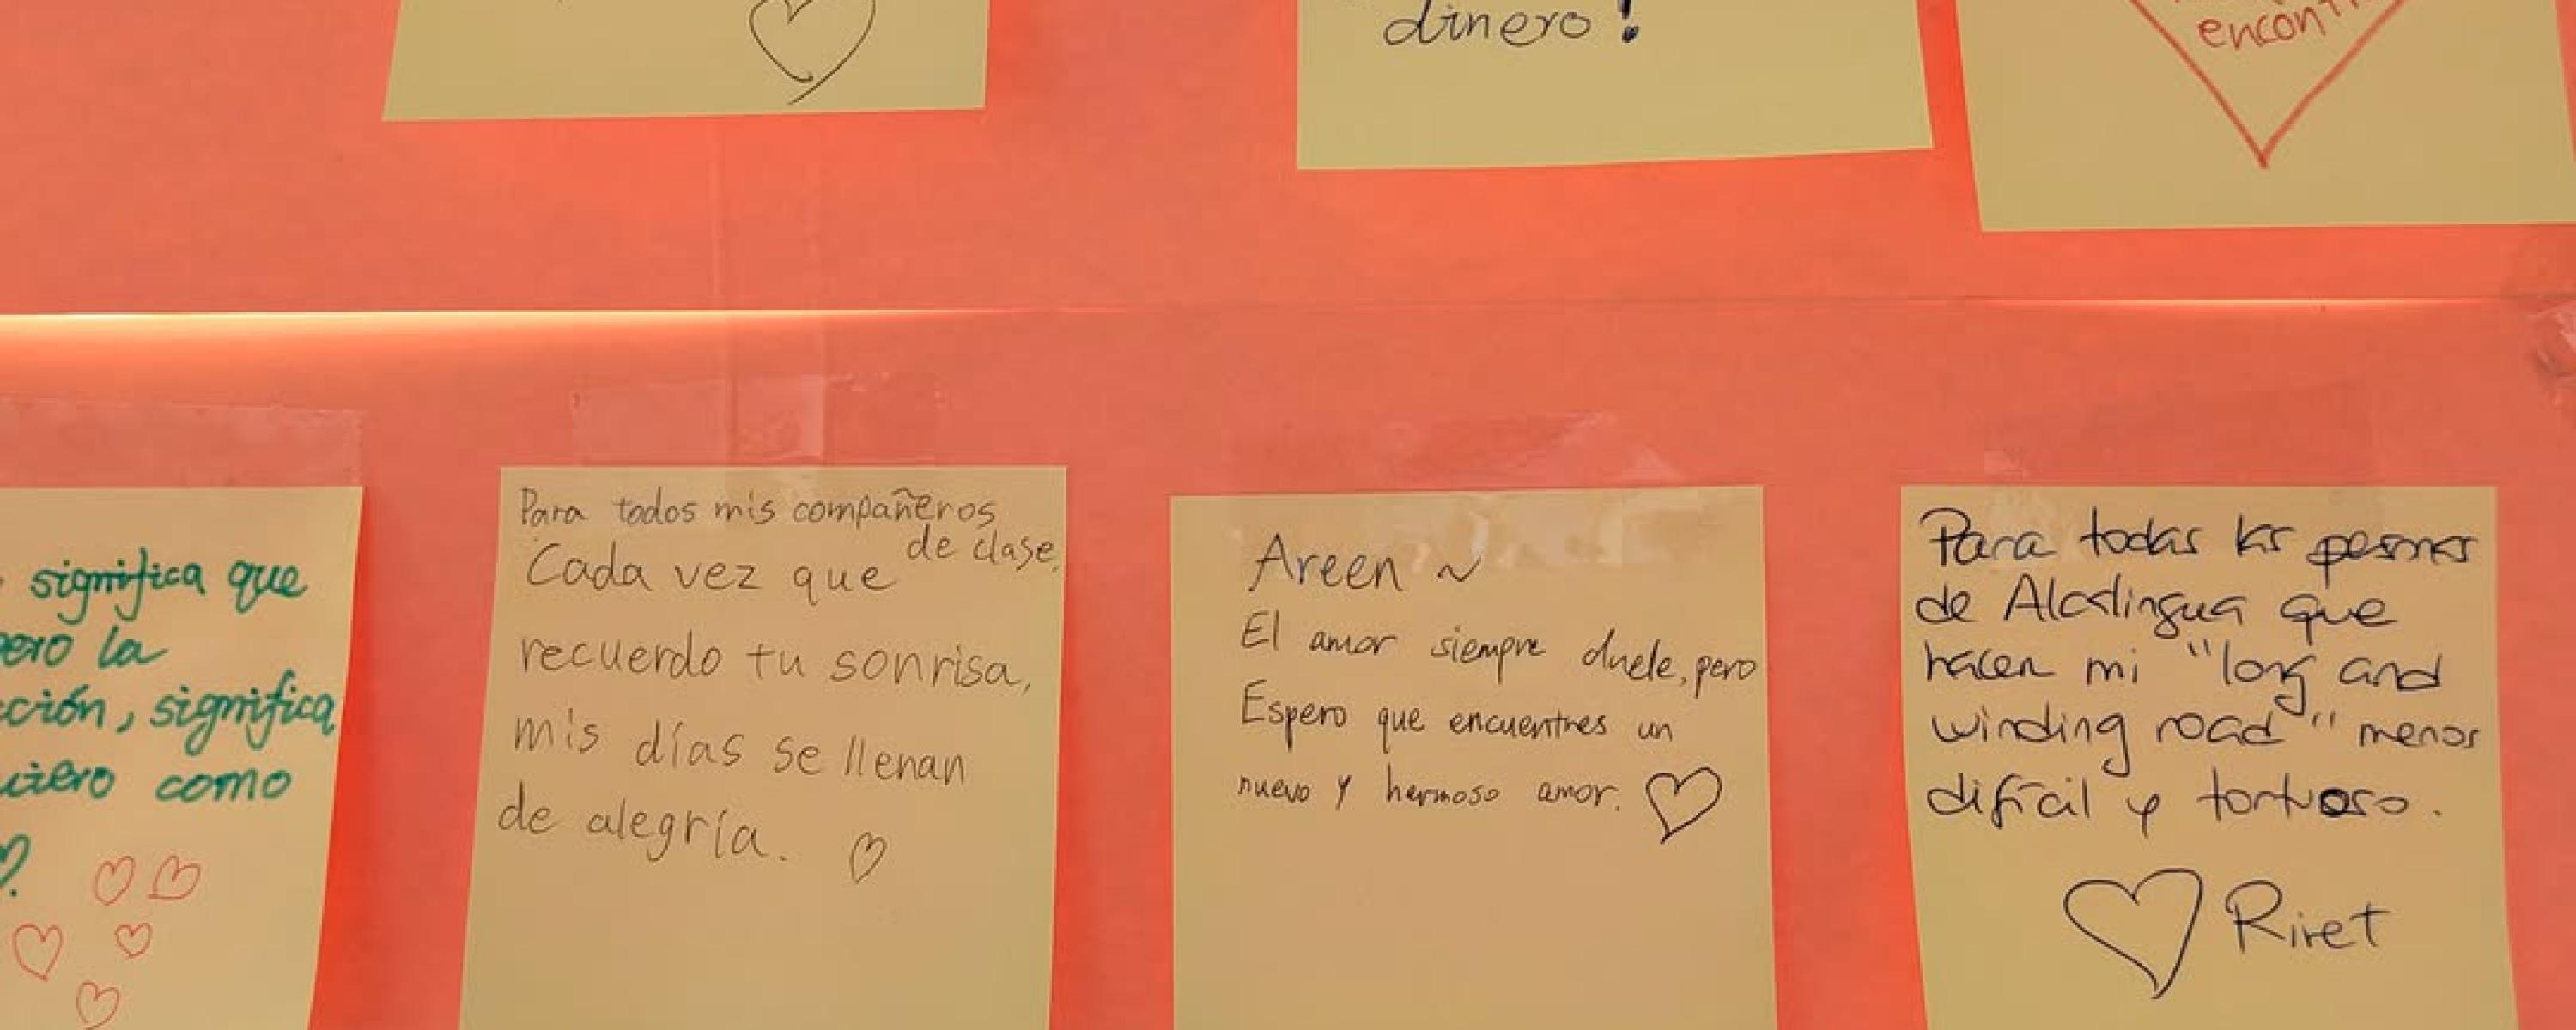 dinero!
significa que
pero la
cción, significa
uiero como
Para todos mis compañeros
de clase,
Cada vez que
recuerdo tu sonrisa,
mis días se llenan
de alegría.
Areen ~
El amor siempre duele, pero
Espero que encuentres un
nuevo y hermoso amor.
Para todas las personas
de Alcalingua que
hacen mi "long and
winding road" menos
difícil y tortuoso.
Riret